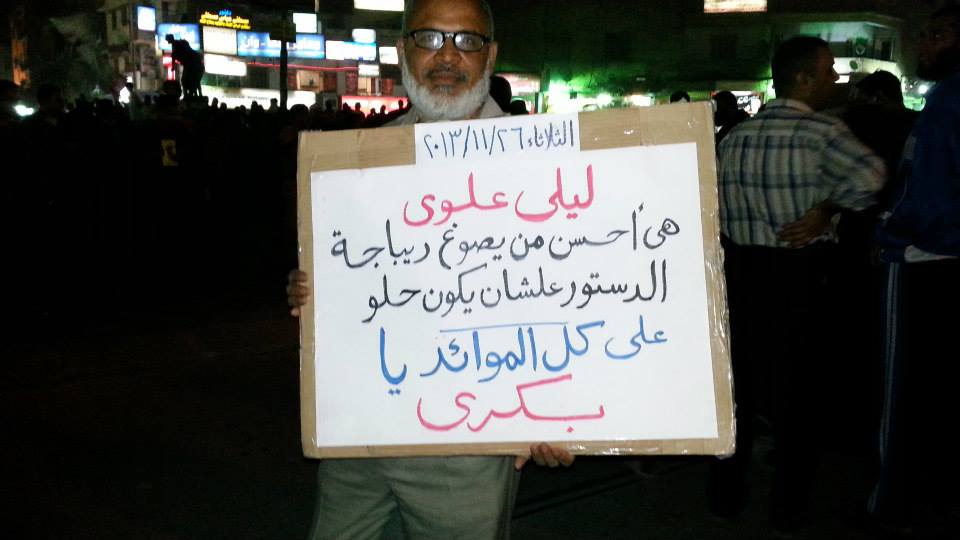 الثلاثاء ٢٠١٣/١١/٢٦
ليلى علوى
هى أحسن من يصوغ ديباجة
الدستور علشان يكون حلو
على كل الموائد يا
بكرى